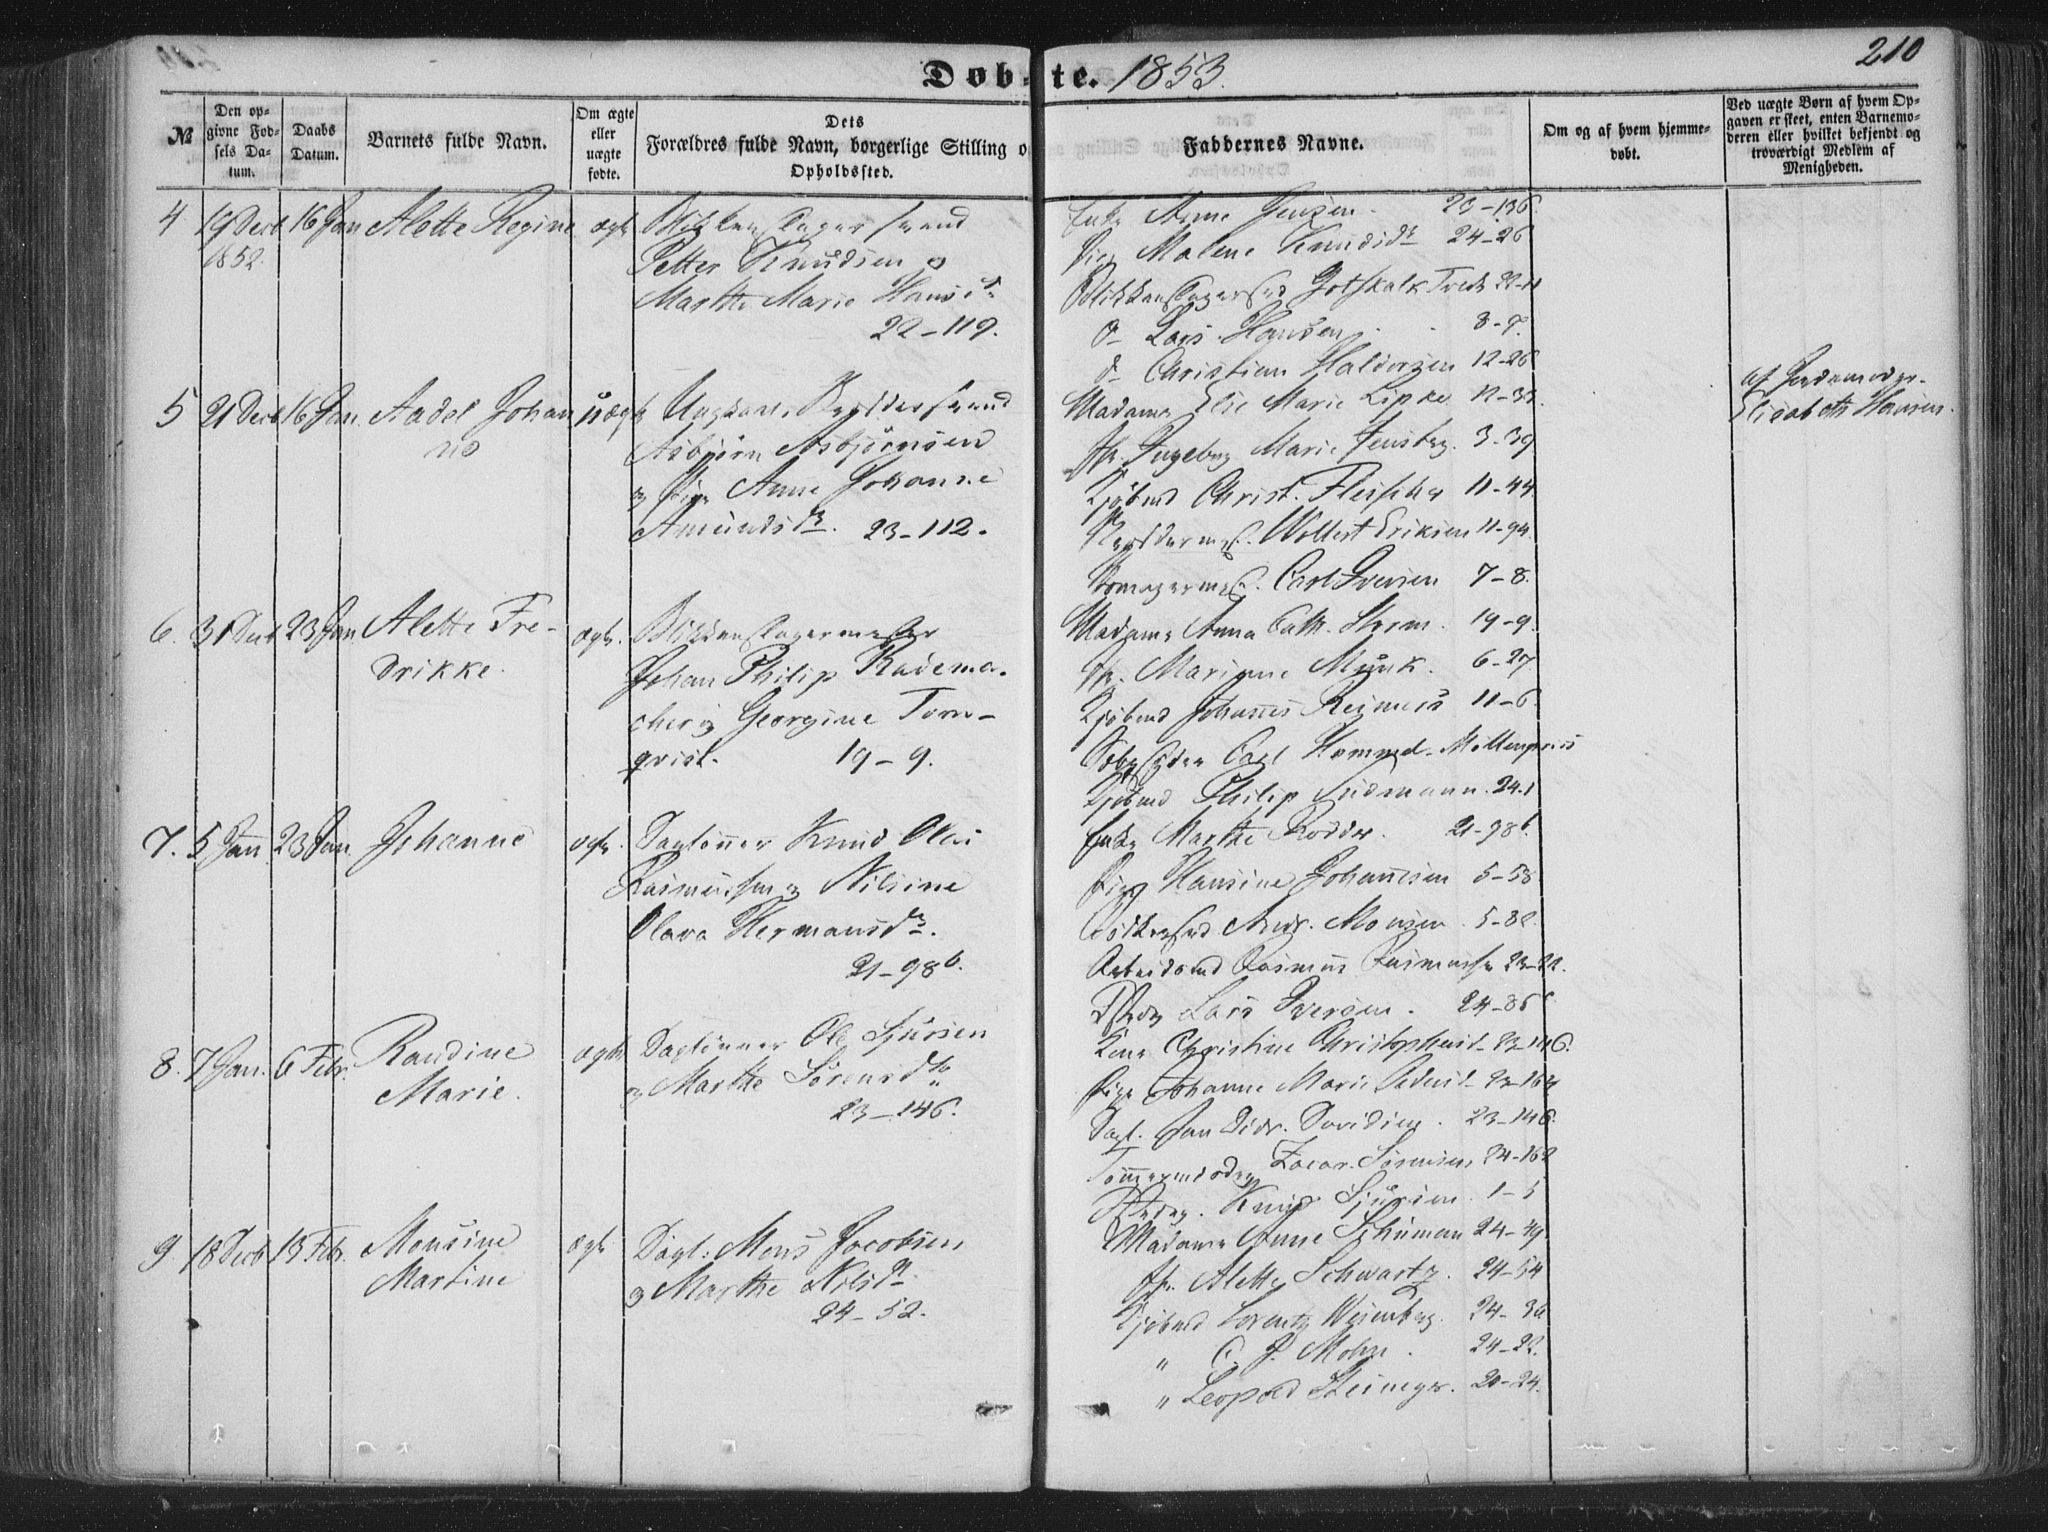 Døb-te. 1853.
210
№
Den op-
givne Fød-
sels Da-
tum.
Daabs
Datum.
Barnets fulde Navn.
Om ægte
eller
uægte
fødte.
Dets
Forældres fulde Navn, borgerlige Stilling o
Opholdssted.
Faddernes Navne.
Om og af hvem hjemme-
døbt.
Ved uægte Børn af hvem Op-
gaven er skeet, enten Barnemo-
deren eller hvilket bekjendt og
troværdigt Medlem af
Menigheden.
4 19 Decb 16 Jan Alette Regine ægte Blikkenslagersvend
1852.
Petter Knudsen og
Marthe Marie Hansd.
22-119.
Enke Anne Jensen. 23-136.
Pige Malene Knudsdr 24-26
Blikkenslagersvd Gotskalk Fredr 22-11
d- Lars Hansen 8-7.
d- Christian Haldorsen 12-26
5 21 Decb 16 Jan. Aadel Johan uægte Ungkarl, Bøddersvend
ne
Asbjørn Asbjørnsen
og Pige Anne Johanne
Amundsdr. 23-112.
Madame Elie Marie Lipke 12-33.
Jfr. Ingeborg Marie Jensberg. 3-39
Kjøbmd Christ. Fleischer 11-44
Bøddermest. Wollert Eriksen 11-94.
Carl Iversen 7-8.
af Jordemoder
Elisabeth Hansen.
6. 31 Decb 23 Jan Alette Fre- ægte. Blikkenslagermester
drikke.
Johan Philip Radema-
cher og Georgine Torn-
qvist. 19-9.
Madame Anna Cath. Storm. 19-9.
Jfr. Marianne Munk. 6-27.
Kjøbmd Johannes Reimers 11-6
Carl Hammel Møllenpriis
Kjøbmd Philip 24-1
7. 5 Jan 23 Jan Johanne ægte. Dagløner Knud Olai
Rasmussen og Nilsine
Olava Hermansdr.
21-98b.
Enke Marthe Rødder. 21-98b.
Pige Hansine Johannesen 5-58
Andr. Monsen 5-82.
Arbeidsmd Rasmus Rasmussen 23-22.
Lars Iversen. 24-86b
8. 7 Jan. 6 Febr. Randine ægte Dagløner Ole Sjursen
Marie.
og Marthe Sørensdr
23-146.
Kone Christine Christophersd. 23-146.
Pige Johanne Marie Pedersd. 23-164
Dagl. Jan Didr. Davidsen. 23-146.
Zacar. Sørensen 24-162
Knud Sjursen. 1-5
9 18 Decb 13 Febr. Monsine ægte Dagl. Mons Jacobsen
Martine
og Marthe Nilsdr.
24-52.
Madame Anne Schuman 24-49
Jfr. Alette Schwartz. 24-54
Kjøbmd Lorentz Wesenberg. 24-30
" C. J. Mohn. 24-22.
" Leopold Steineger. 20-24.